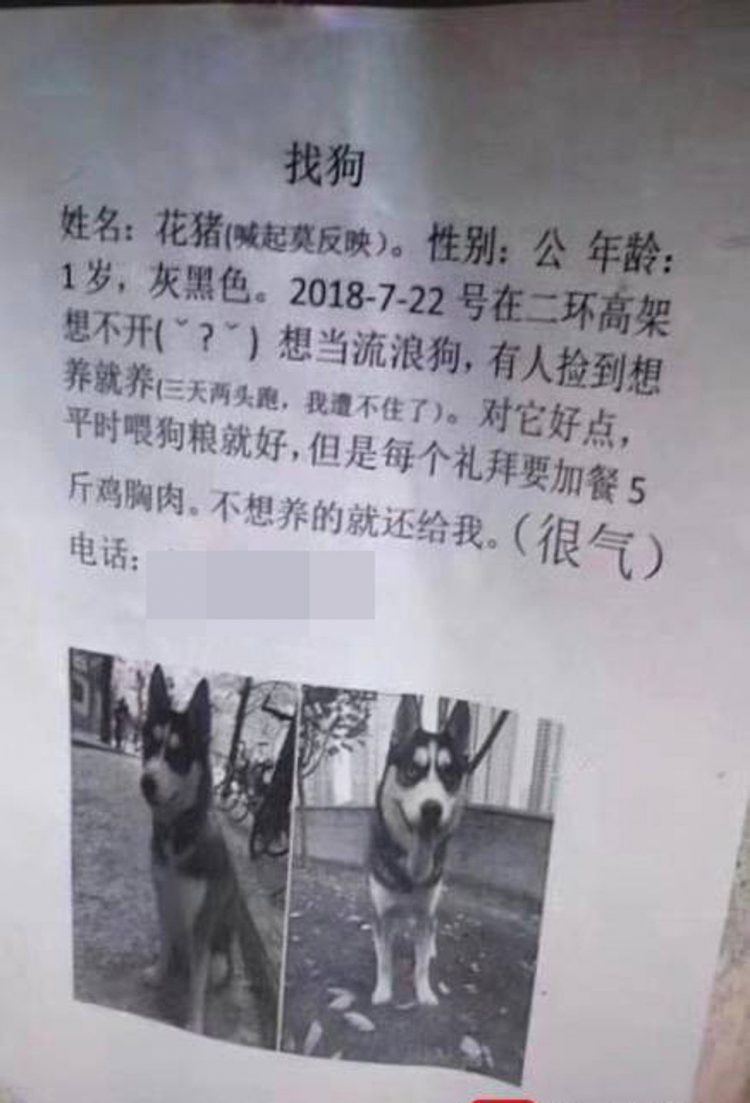 找狗
姓名：花猪(喊起莫反映)。性别：公 年龄：
1岁，灰黑色。2018-7-22 号在二环高架
想不开(ˇ?ˇ) 想当流浪狗，有人捡到想
养就养(三天两头跑，我遭不住了)。对它好点，
平时喂狗粮就好，但是每个礼拜要加餐 5
斤鸡胸肉。不想养的就还给我。（很气）
电话：